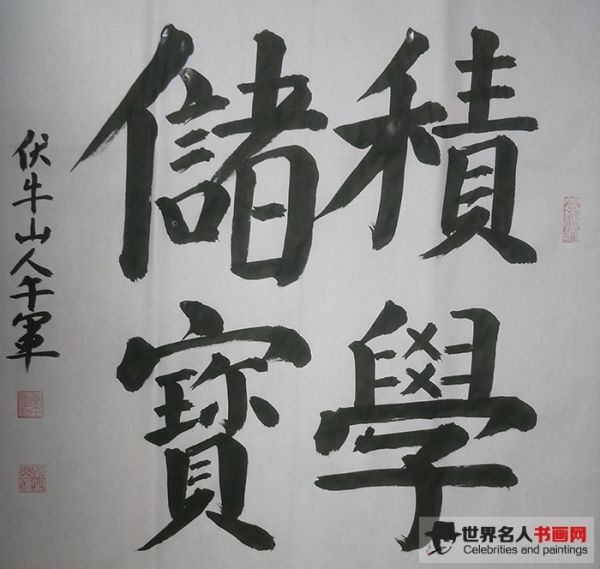 積學
儲寶
伏牛山人午軍
世界名人书画网
Celebrities and paintings